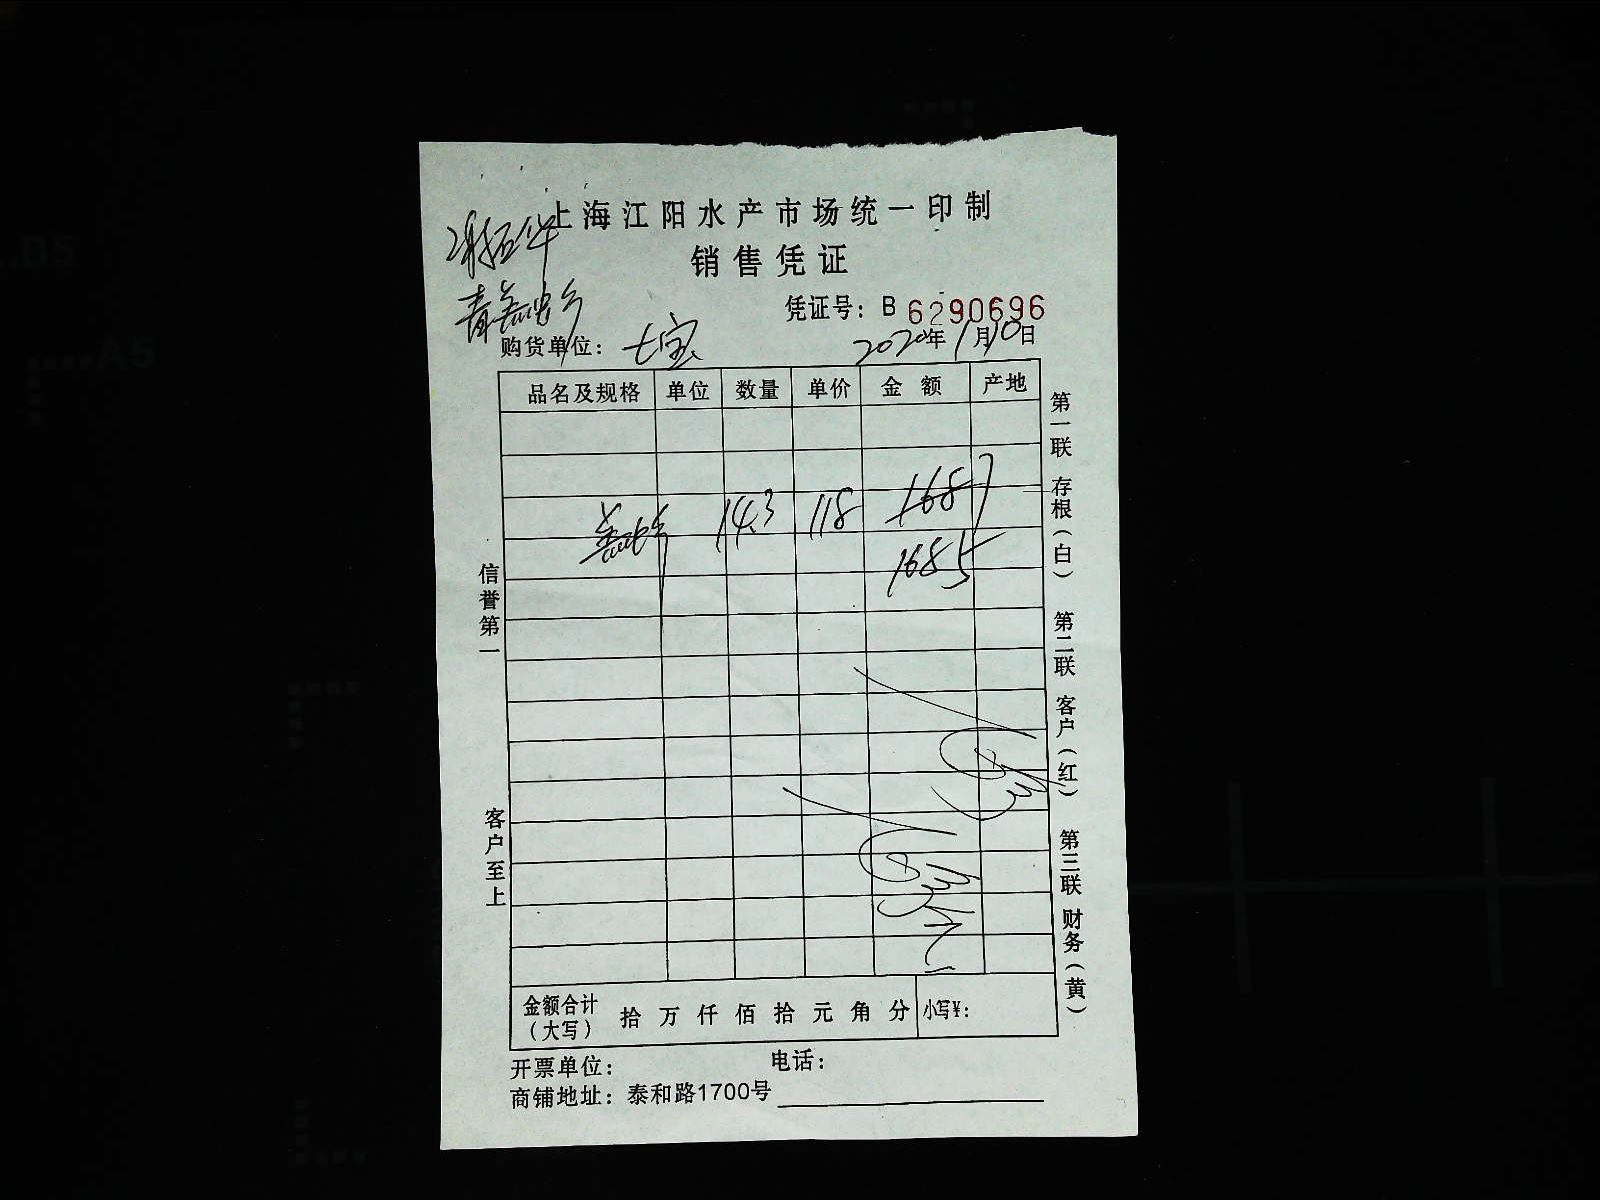 上海江阳水产市场统一印制
销售凭证
凭证号：B 6290696
购货单位：七宝 2020年1月10日
品名及规格 单位 数量 单价 金额 产地
14.3 118 1687
1685
信誉第一
客户至上
第一联 存根（白） 第二联 客户（红） 第三联 财务（黄）
金额合计（大写） 拾 万 仟 佰 拾 元 角 分 小写¥：
开票单位： 电话：
商铺地址：泰和路1700号